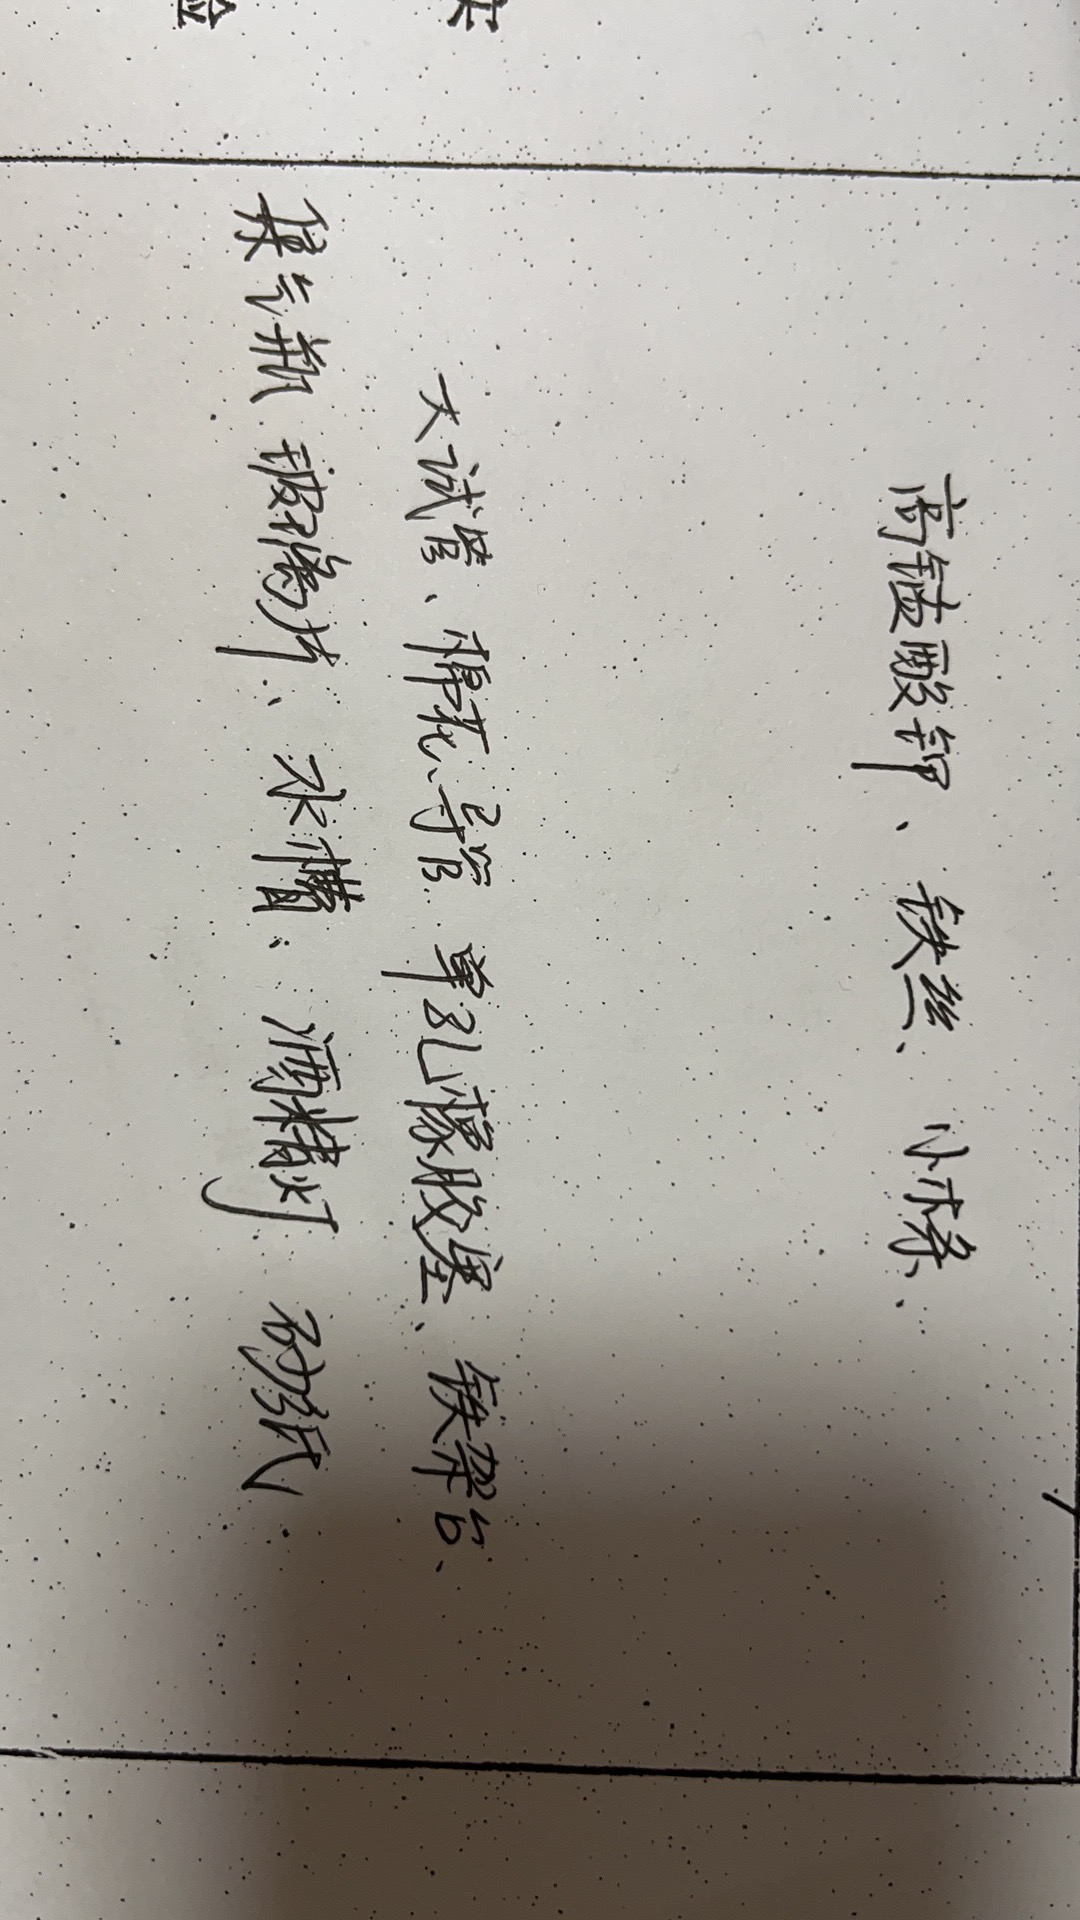 高锰酸钾、铁丝、小木条、
大试管、棉花、导管、单孔橡胶塞、铁架台、
集气瓶、玻璃片、水槽、酒精灯 砂纸